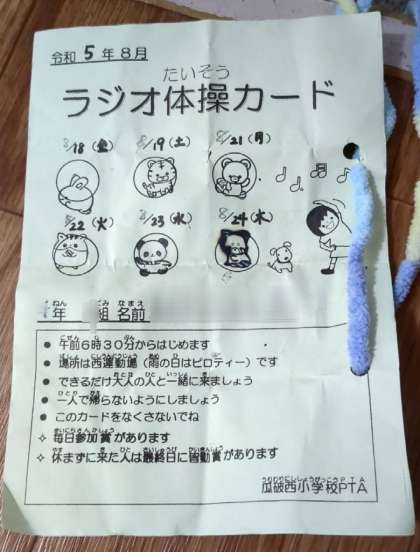 令和 5 年 8月
たいそう
ラジオ体操カード
8/18 (金) 8/19 (土) 8/21 (月)
8/22 (火) 8/23 (水) 8/24 (木)
ねん くみ なまえ
年 組 名前
● 午前6時30分からはじめます
● 場所は西運動場（雨の日はピロティー）です
● できるだけ大人の人と一緒に来ましょう
● 一人で帰らないようにしましょう
● このカードをなくさないでね
✧ 毎日参加賞があります
✧ 休まずに来た人は最終日に皆勤賞があります
瓜破西小学校PTA